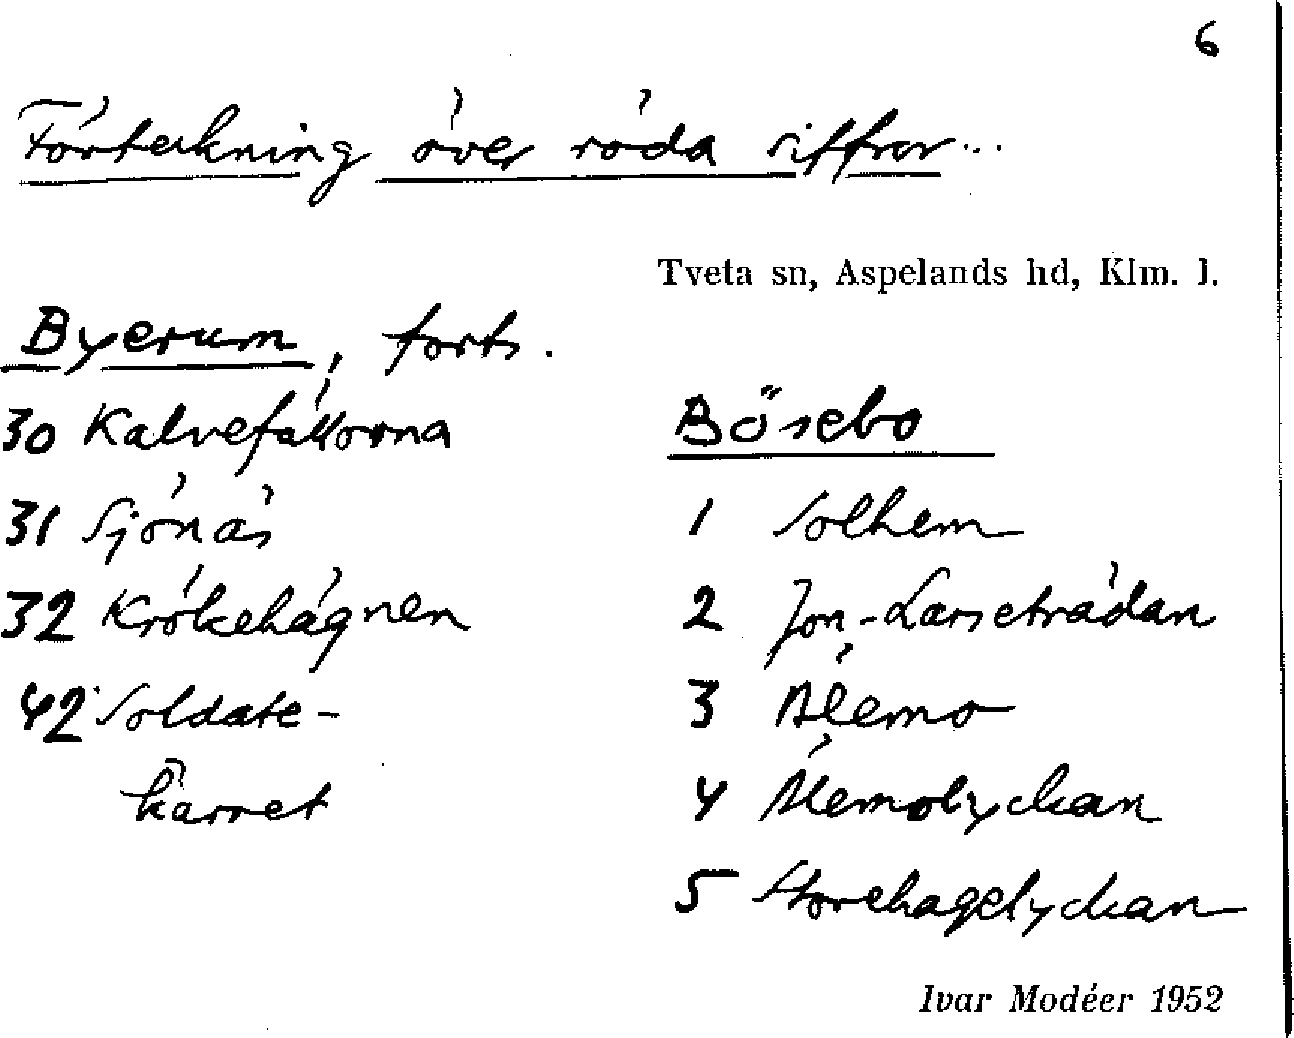 6
Förteckning över röda siffror...
Tveta sn, Aspelands hd, Klm. l.
Byerum, forts.
30 Kalvefållorna
31 Sjönäs
32 Krökehägnen
42 Soldate-
kärret
Bösebo
1 Solhem
2 Jon-Larseträdan
3 Älemo
4 Älemolyckan
5 Storehagelyckan
Ivar Modéer 1952